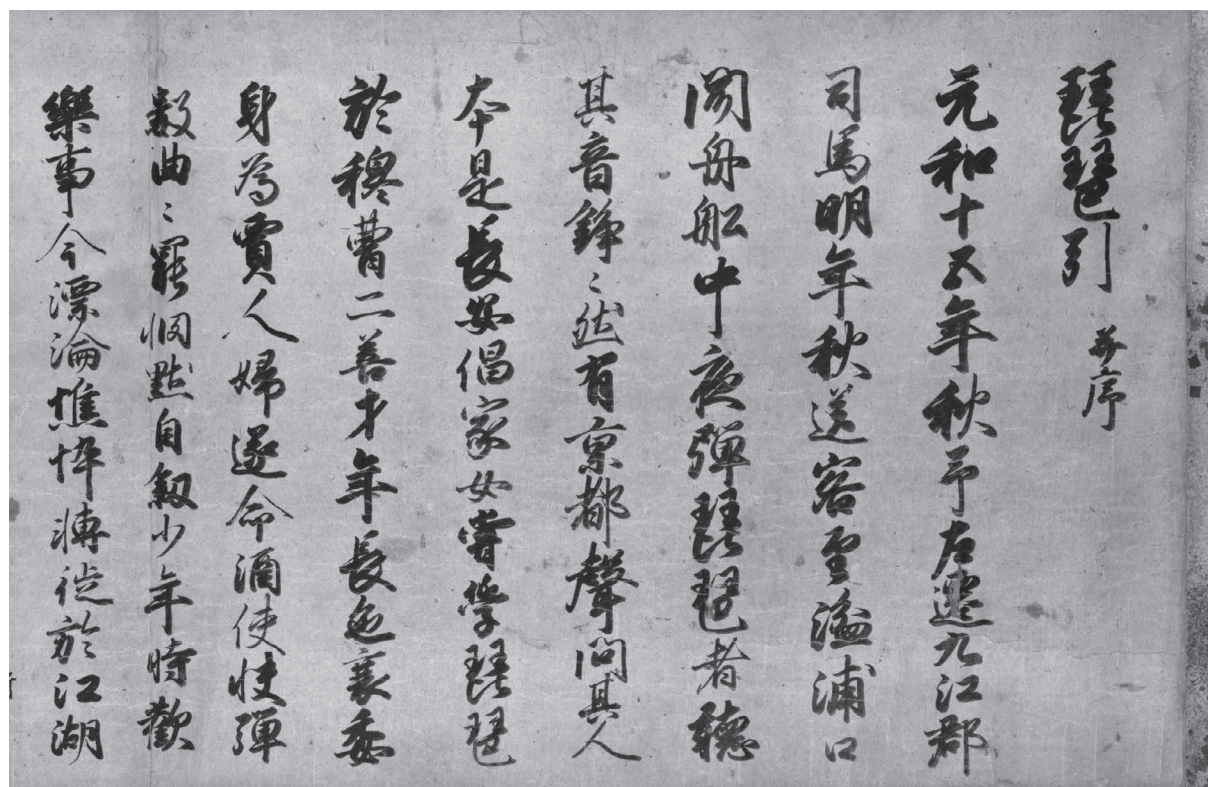 琵琶引 并序
元和十五年秋予左遷九江郡
司馬明年秋送客至湓浦口
聞舟舩中夜彈琵琶者聽
其音錚〻然有京都聲問其人
本是長安倡家女嘗學琵琶
於穆曹二善才年長色衰委
身為賈人婦遂命酒使快彈
數曲〻罷憫默自敘少年時歡
樂事今漂淪憔悴轉徙於江湖